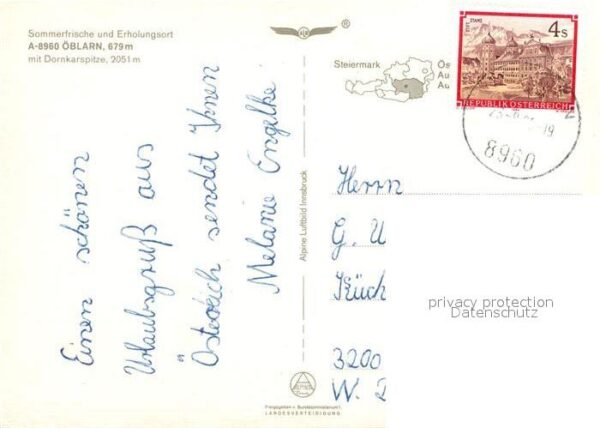 Sommerfrische und Erholungsort
A-8960 ÖBLARN, 679 m
mit Dornkarspitze, 2051 m
®
Steiermark
Ös
Au
Au
STIFT STAMS
4 S
REPUBLIK ÖSTERREICH
8960
Einen schönen
Urlaubsgruß aus
Österreich sendet Ihnen
Melanie Engelke
Alpine Luftbild Innsbruck
Herrn
G. U
Küch
3200
W. 2
privacy protection
Datenschutz
Freigegeben v. Bundesministerium f.
LANDESVERTEIDIGUNG